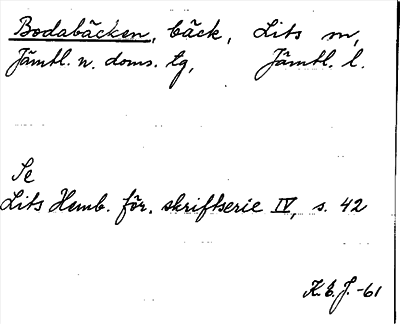 Bodabäcken, bäck, Lits sn,
Jämtl. n. doms. tg, Jämtl. l.
Se
Lits Hemb. för. skriftserie IV, s. 42
K.E.J. -61